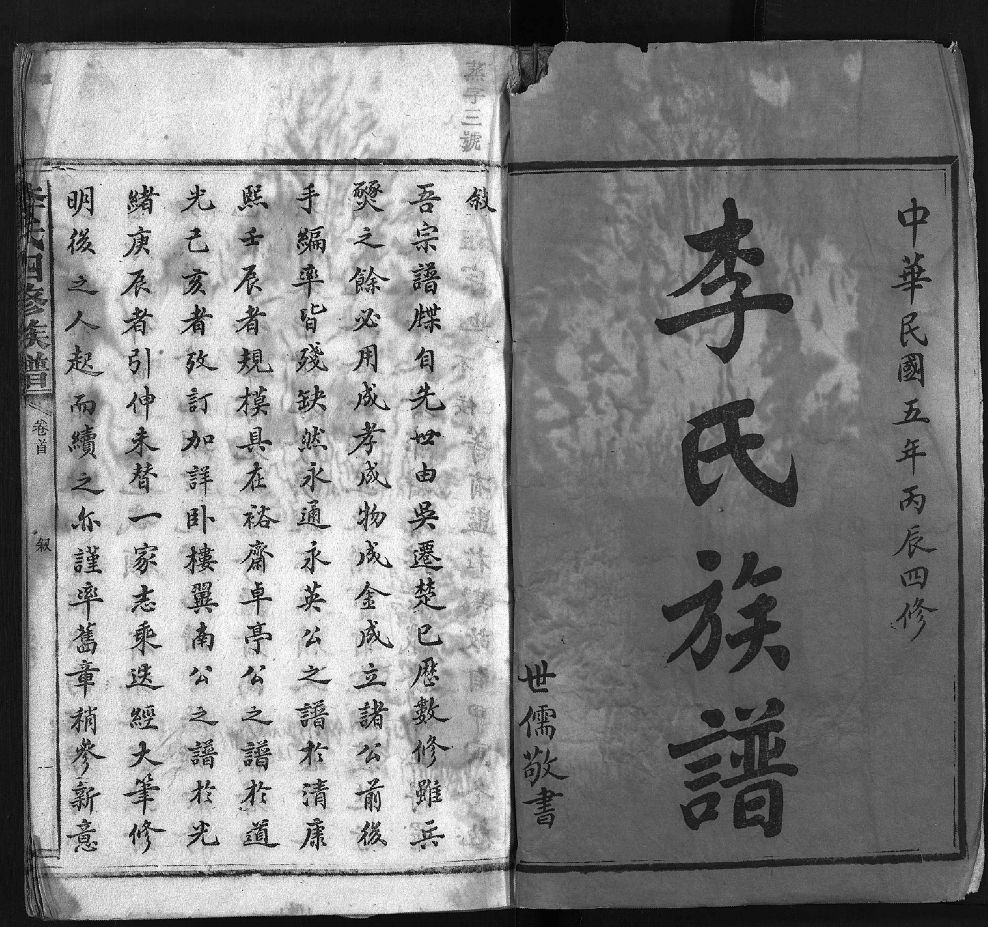 中華民國五年丙辰四修
李氏族譜
世儒敬書
燕字三號
敘
吾宗譜牒自先世由吳遷楚已歷數修雖兵
燹之餘必用成孝成物成金成立諸公前後
手編率皆殘缺然永通永英公之譜於清康
熙壬辰者規模具在裕齋卓亭公之譜於道
光己亥者攷訂加詳卧樓翼南公之譜於光
緒庚辰者引伸未替一家志乘迭經大筆修
明後之人起而續之亦謹率舊章稍參新意
李氏四修族譜
卷首
叙